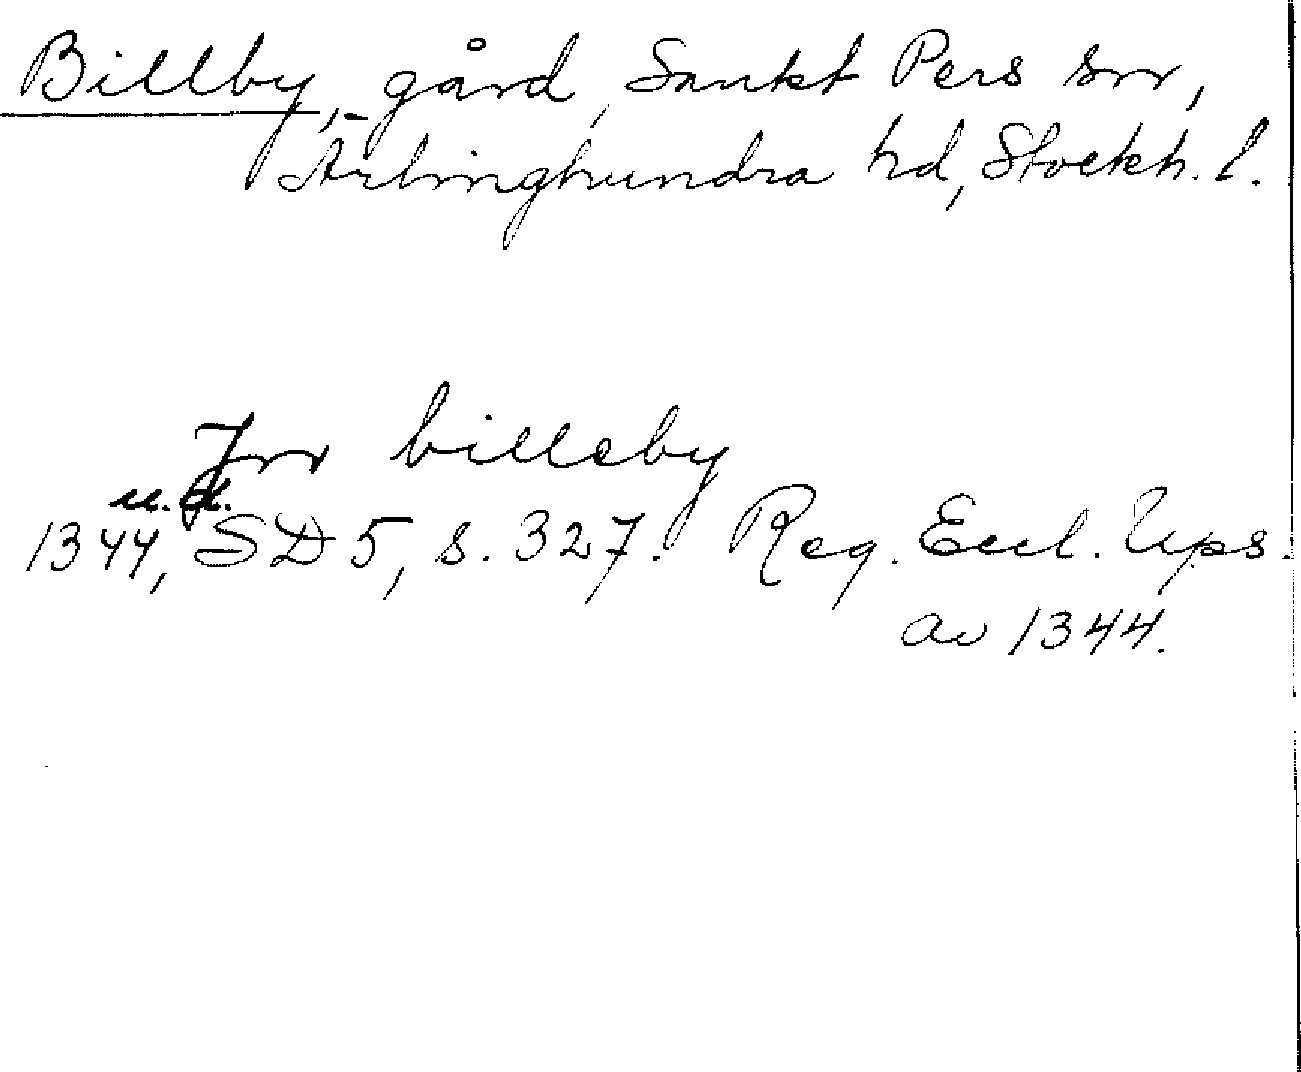 Billby, gård, Sankt Pers sn,
Ärlinghundra hd, Stockh. l.
Jn billeby
u.d.
1344, SD 5, s. 327. Reg. Eccl. Ups.
av 1344.